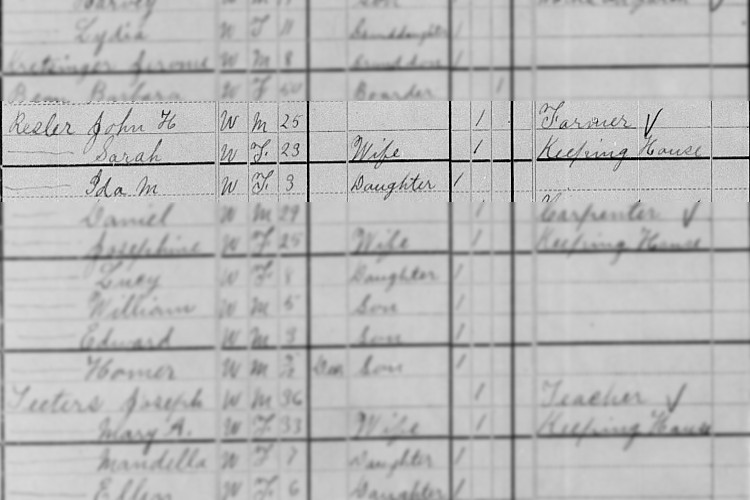 Harvey W M Son
Lydia W F 11 Granddaughter 1
Kretzinger Jerome W M 8 Grand Son 1
Beam Barbara W F 50 Boarder 1
Resler John H W M 25 1 Farmer ✓
—— Sarah W F. 23 Wife 1 Keeping House
—— Ida M W F. 3 Daughter 1
—— Daniel W M 29 1 Carpenter ✓
—— Josephine W F 25 Wife 1 Keeping House
—— Lucy W F 8 Daughter 1
—— William W M 5 Son 1
—— Edward W M 3 Son 1
—— Homer W M Son 1
Teeters Joseph W M 36 1 Teacher ✓
—— Mary A. W F 33 Wife 1 Keeping House
—— Mandella W F 7 Daughter 1
Ellen W F 6 Daughter 1